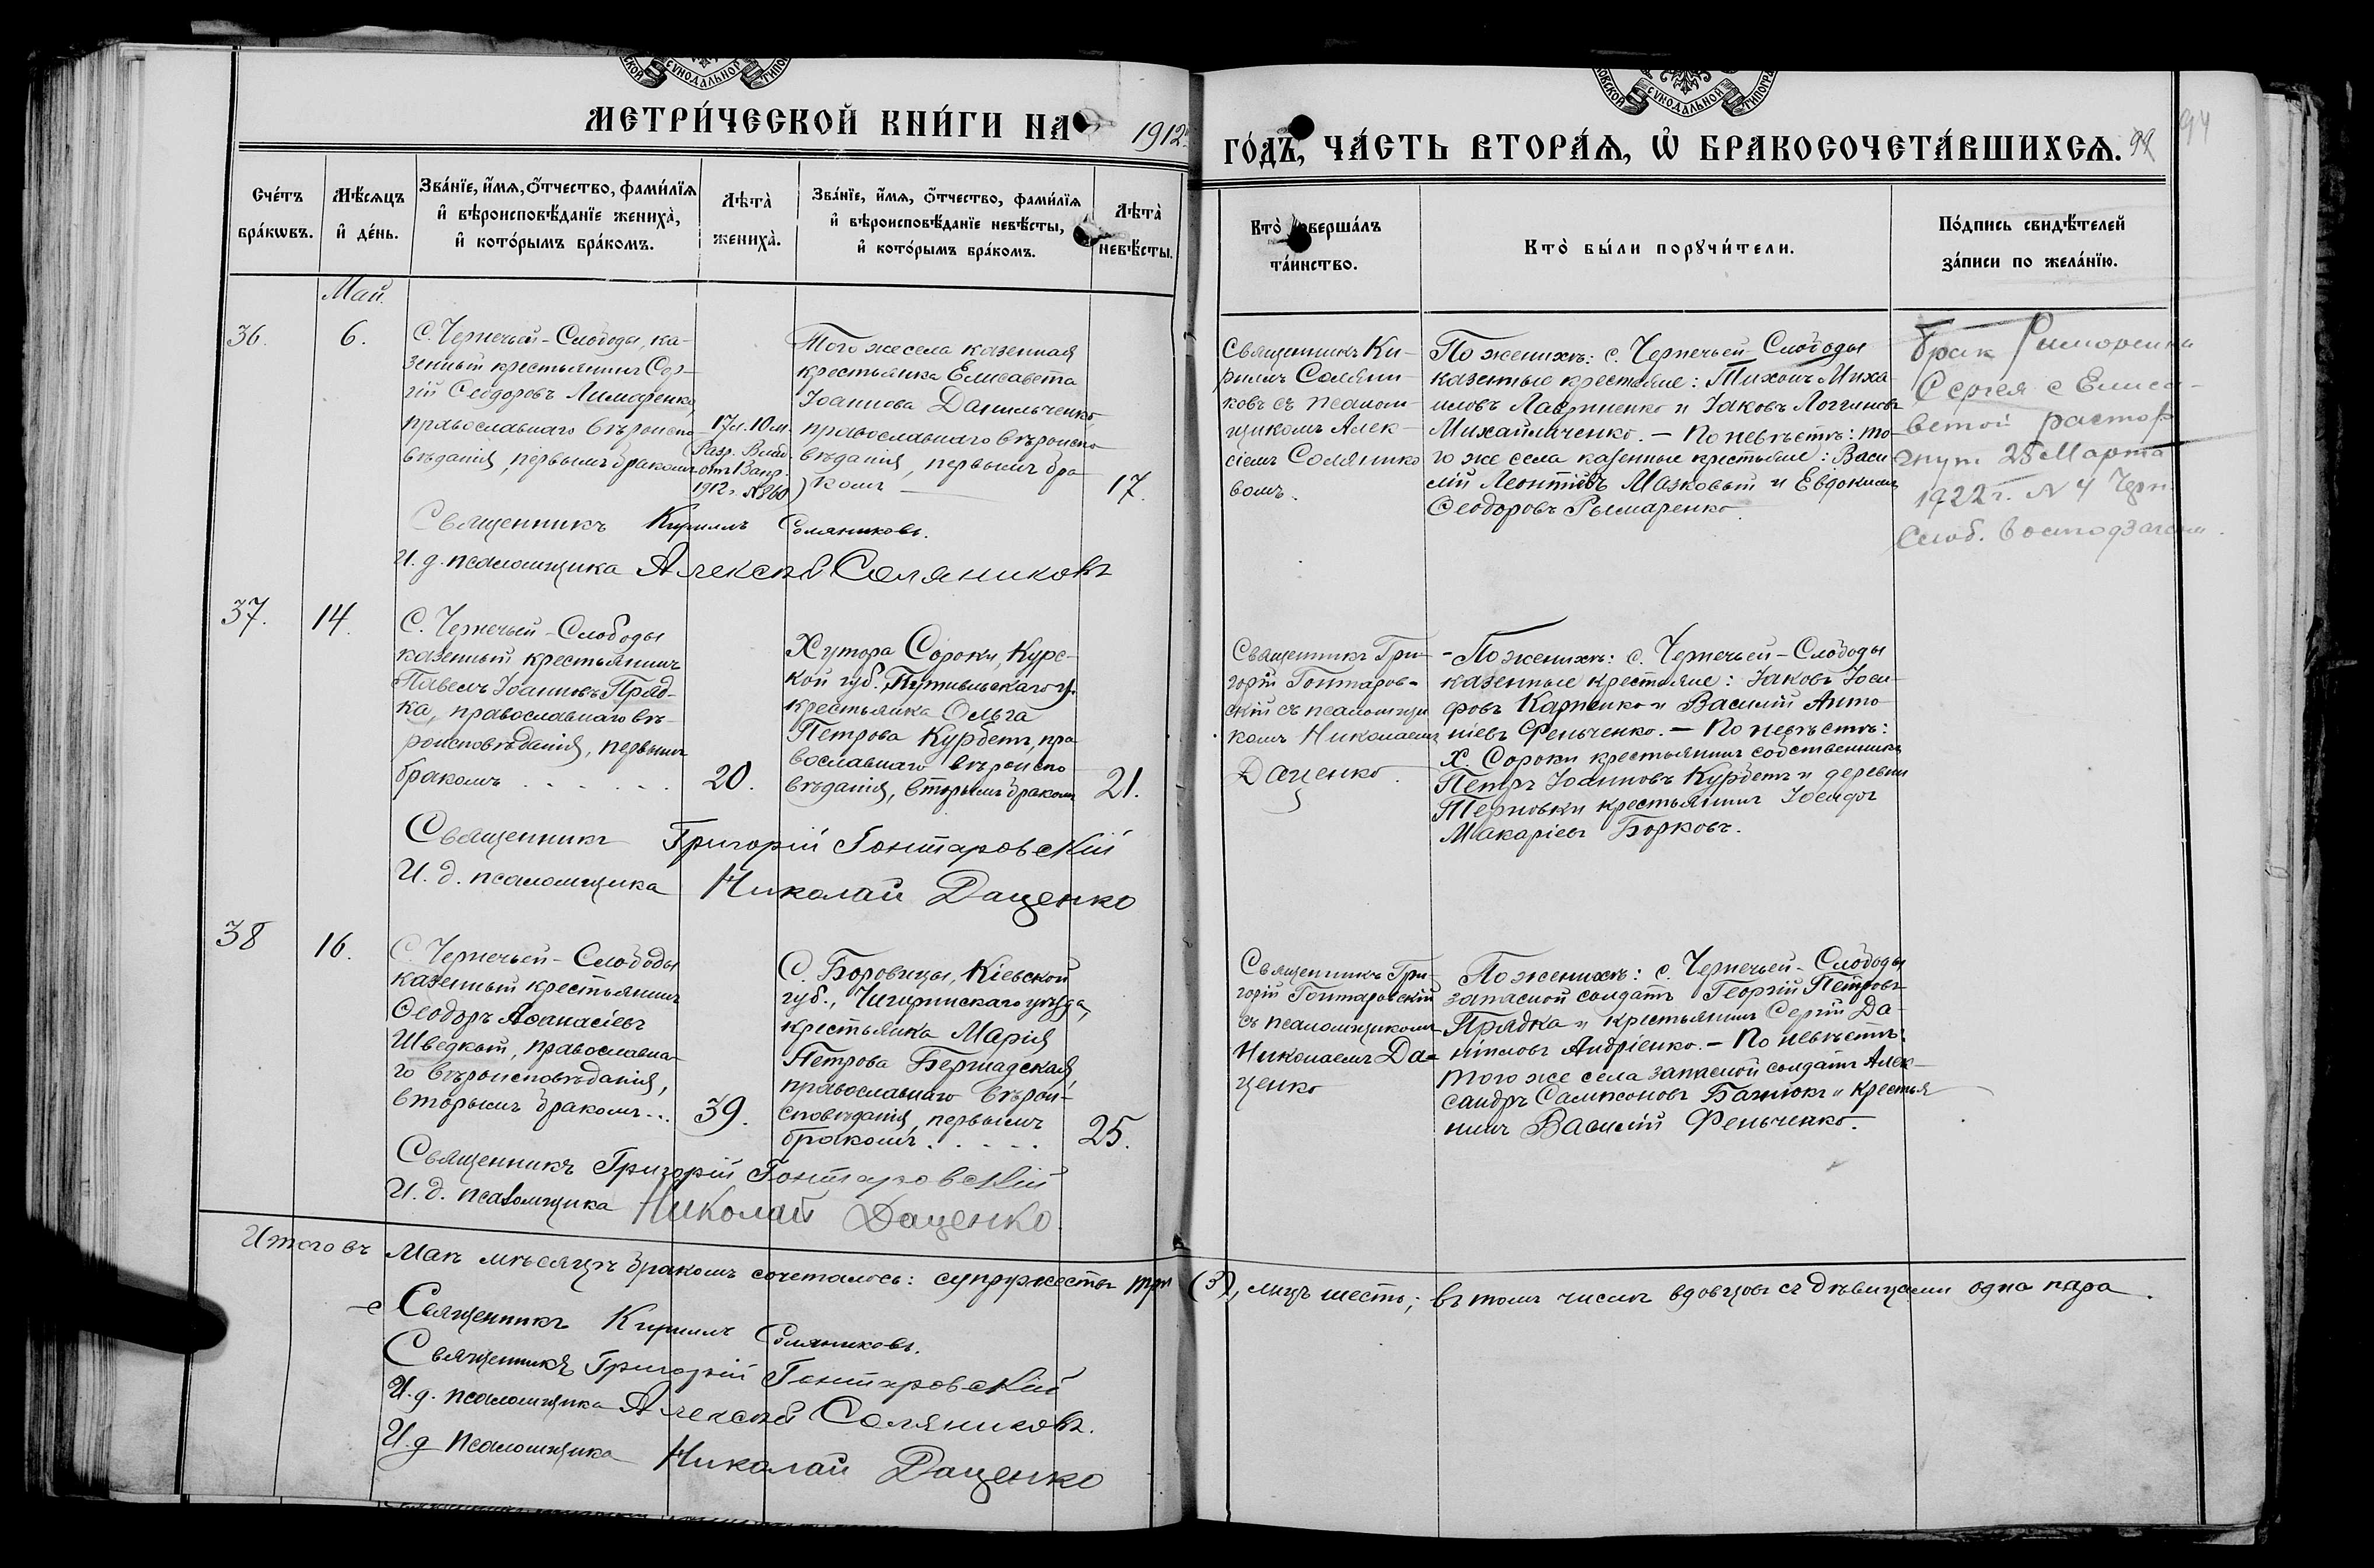 МЕТРИ́ЧЕСКОЙ КНИ́ГИ НА 1912
ГО́ДЪ, ЧА́СТЬ ВТОРА́Ѧ, Ѡ҆ БРАКОСОЧЕТА́ВШИХСѦ. 94
Сче́тъ бра́кѡвъ.
Мѣ́сѧцъ и҆ де́нь.
Зва́нїе, и҆́мѧ, ѻ҆́тчество, фами́лїѧ
и҆ вѣроисповѣ́данїе жениха̀,
и҆ кото́рымъ бра́комъ.
Лѣта̀ жениха̀.
Зва́нїе, и҆́мѧ, ѻ҆́тчество, фами́лїѧ
и҆ вѣроисповѣ́данїе невѣ́сты,
и҆ кото́рымъ бра́комъ.
Лѣта̀ невѣ́сты.
Кто̀ соверша́лъ
та́инство.
Кто̀ бы́ли порꙋчи́тели.
По́дпись свидѣ́телей
за́писи по жела́нїю.
Май
36.
6.
С. Чернечьей-Слободы, ка-
зенный крестьянинъ Сер-
гій Ѳеодоровъ Лимаренко,
православнаго вѣроиспо-
вѣданія, первымъ бракомъ
17 л. 10 м.
1912 г. № 860)
Того же села казенная
крестьянка Елисавета
Іоаннова Данильченко,
православнаго вѣроиспо-
вѣданія, первымъ бра-
комъ
17.
Священникъ Ки-
риллъ Соляни-
ковъ съ псалом-
щикомъ Алек-
сіемъ Соляннко
вомъ.
По женихѣ: с. Чернечьей-Слободы
казенные крестьяне: Тихонъ Миха-
иловъ Лавриненко и Іаковъ Логгиновъ
Михайличенко. – По невѣстѣ: то-
го же села казенные крестьяне: Васи-
лій Леонтіевъ Мазковый и Евдокимъ
Ѳеодоровъ Рымаренко.
брак
Сергея с Елиса-
ветой растор
гнут 28 Марта
1922 г. № 4 Черн.
Слоб.
Священникъ Кириллъ Соляниковъ.
И. д. псаломщика Алексѣй Соляниковъ
37.
14.
С. Чернечьей-Слободы
казенный крестьянинъ
Павелъ Іоанновъ Пряд-
ка, православнаго вѣ-
роисповѣданія, первымъ
бракомъ . . . . . .
20.
Хутора Сороки, Курс-
кой губ. Путивльскаго у.
крестьянка Ольга
Петрова Курбетъ, пра-
вославнаго вѣроиспо
вѣданія, вторымъ бракомъ
21.
Священникъ Гри-
горій Гонтаров-
скій съ псаломщи
комъ Николаемъ
Даценко.
- По женихѣ: с. Чернечьей-Слободы
казенные крестьяне: Іаковъ Іоси-
фовъ Карпенко и Василій Анто
ніевъ Феньченко. – По невѣстѣ:
Х. Сороки крестьянинъ собственникъ
Петръ Іоанновъ Курбетъ и деревни
Терновки крестьянинъ
Макаріевъ Борковъ.
Священникъ Григорій Гонтаровскій
И. д. псаломщика Николай Даценко
38
16.
С. Чернечьей-Слободы
казенный крестьянинъ
Ѳеодоръ Аѳанасіевъ
Шведкый, православна-
го вѣроисповѣданія,
вторымъ бракомъ...
39.
С. Боровицы, Кіевской
губ., Чигиринскаго уѣзда,
крестьянка Марія
Петрова Бершадская,
православнаго вѣрои-
сповѣданія, первымъ
бракомъ . . . . .
25.
Священникъ Гри-
горій Гонтаровскій
съ псаломщикомъ
Николаемъ Да-
ценко
По женихѣ: с. Чернечьей-Слободы
запасной солдатъ Георгій Петровъ
Прядка и крестьянинъ Сергій Да-
ніиловъ Андріенко. – По невѣстѣ:
того же села запасной солдатъ Алек-
сандръ Сампсоновъ и крестья
нинъ Василій Феньченко.
Священникъ Григорій Гонтаровскій
И. д. псаломщика Николай Даценко
Итого въ Маѣ мѣсяцѣ бракомъ сочеталось: супружествъ три (3), лицъ шесть; въ томъ числѣ вдовцовъ съ дѣвицами одна пара.
Священникъ Кириллъ Соляниковъ.
Священникъ Григорій Гонтаровскій
И. д. псаломщика Алексѣй Соляниковъ.
И. д псаломщика Николай Даценко